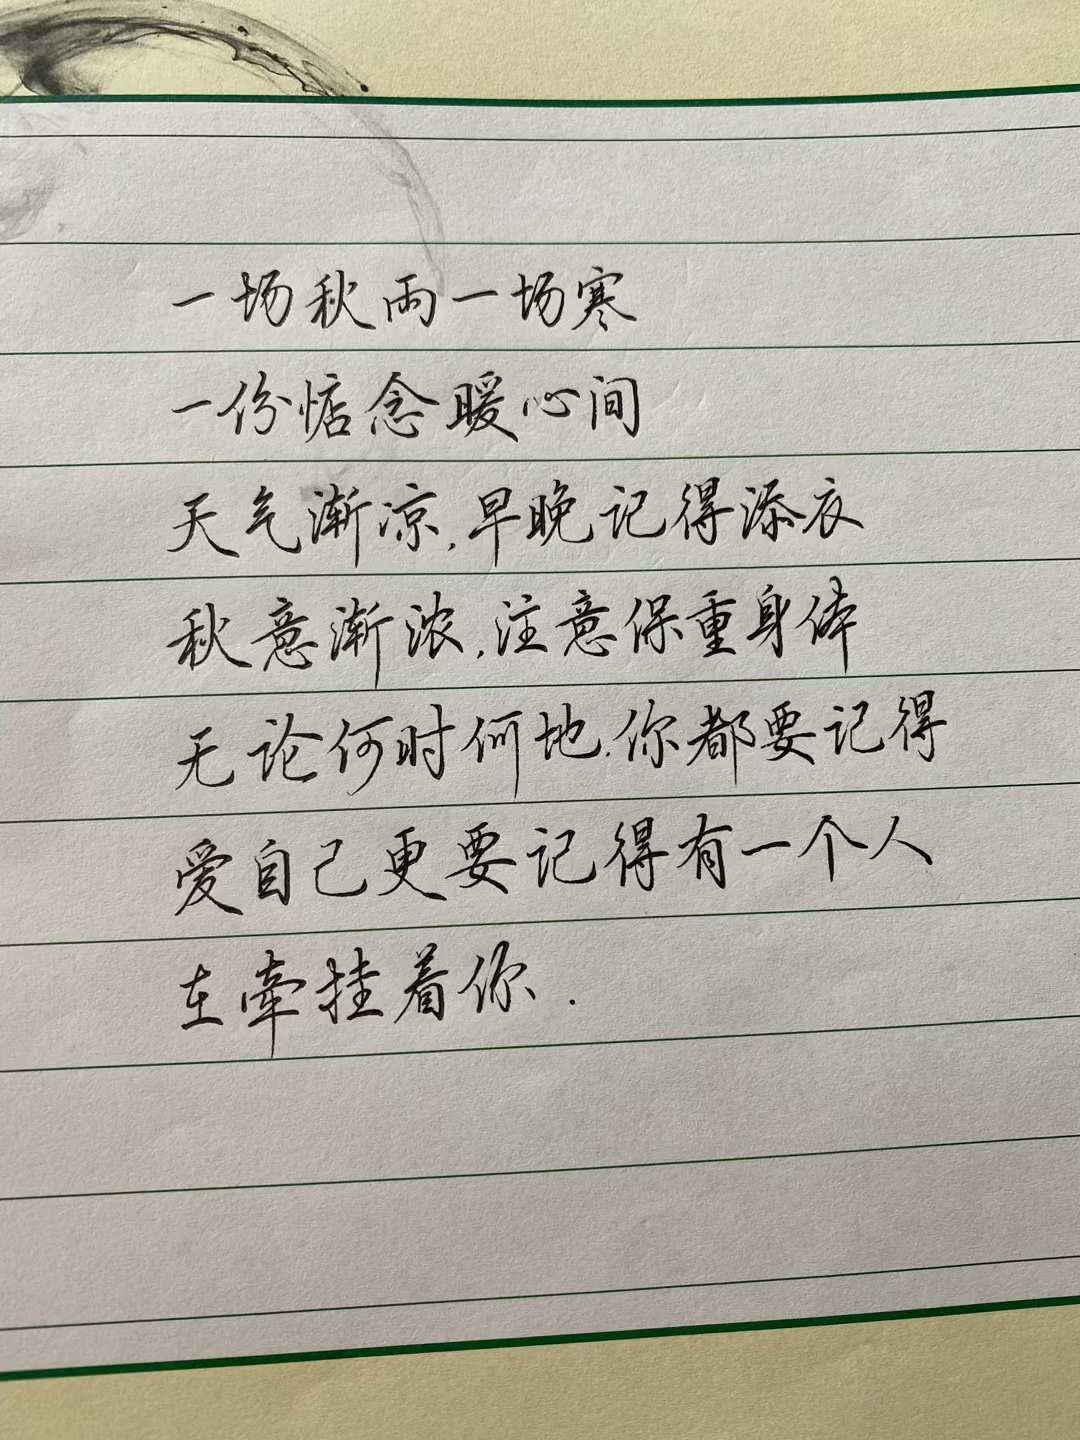 一场秋雨一场寒
一份惦念暖心间
天气渐凉,早晚记得添衣
秋意渐浓,注意保重身体
无论何时何地.你都要记得
爱自己更要记得有一个人
在牵挂着你.